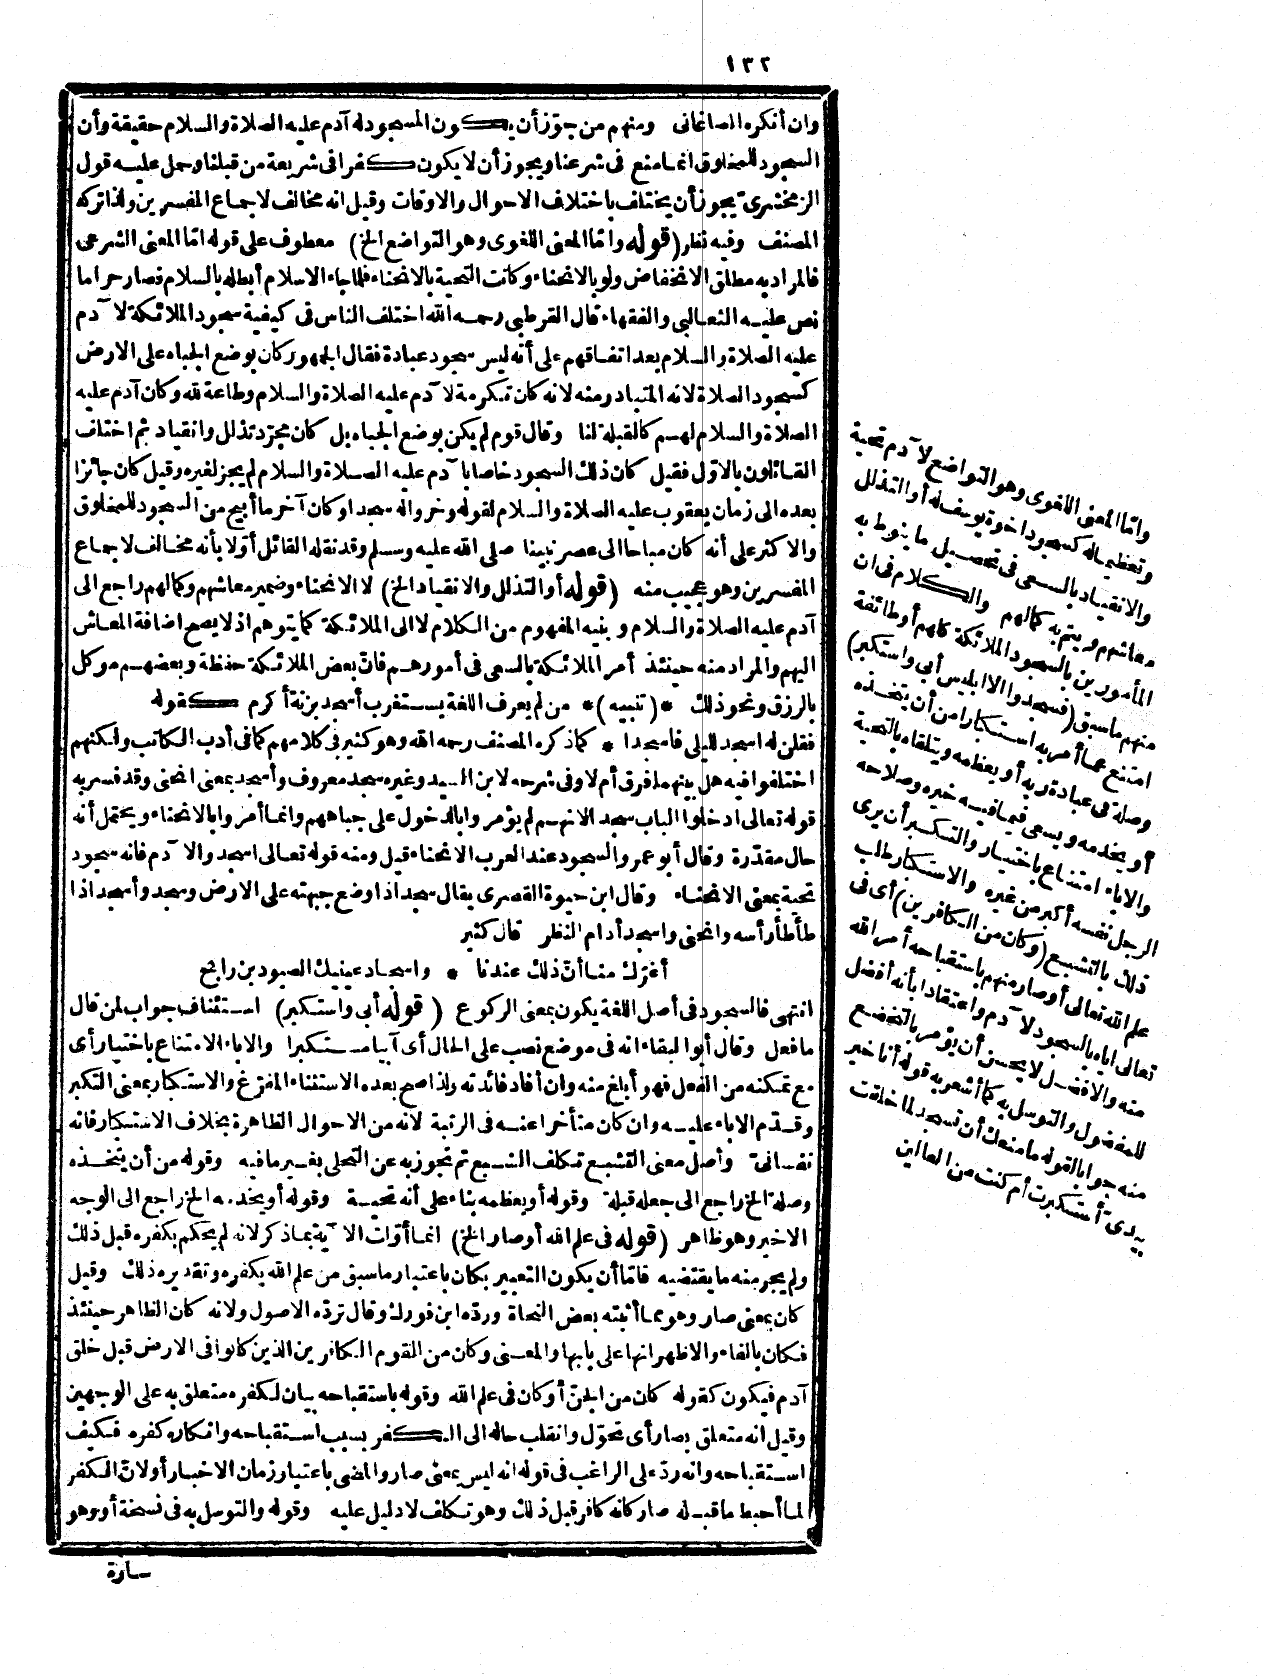 ١٣٢
وان أنكره الصاغانى ومنهم من جوّز أن يكون المسجود له آدم عليه الصلاة والسلام حقيقة وأن
السجود للمخلوق انما منع فى شرعنا ويجوز أن لا يكون كفرا فى شريعة من قبلنا وحمل عليه قول
الزمخشرىّ يجوز أن يختلف باختلاف الاحوال والاوقات وقيل انه مخالف لاجماع المفسرين ولذا تركه
المصنف وفيه نظر (قوله وامّا المعنى اللغوى وهو التواضع الخ) معطوف على قوله امّا المعنى الشرعى
فالمراد به مطلق الانخفاض ولو بالانحناء وكانت التحية بالانحناء فلما جاء الاسلام أبطله بالسلام فصار حراما
نص عليه الثعالبى والفقهاء قال القرطبى رحمه الله اختلف الناس فى كيفية سجود الملائكة لآدم
عليه الصلاة والسلام بعد اتفاقهم على أنه ليس سجود عبادة فقال الجمهور كان بوضع الجباه على الارض
كسجود الصلاة لانه المتبادر ومنه لانه كان تكرمة لآدم عليه الصلاة والسلام وطاعة لله وكان آدم عليه
الصلاة والسلام لهم كالقبلة لنا وقال قوم لم يكن بوضع الجباه بل كان مجرّد تذلل وانقياد ثم اختلف
القائلون بالاوّل فقيل كان ذلك السجود خاصا بآدم عليه الصلاة والسلام لم يجز لغيره وقيل كان جائزا
بعده الى زمان يعقوب عليه الصلاة والسلام لقوله وخروا له سجدا وكان آخر ما أبيح من السجود للمخلوق
والاكثر على أنه كان مباحا الى عصر نبينا صلى الله عليه وسلم وقد نقله القائل أوّلا بأنه مخالف لاجماع
المفسرين وهو عجيب منه (قوله أو التذلل والانقياد الخ) لا الانحناء وضمير معاشهم وكمالهم راجع الى
آدم عليه الصلاة والسلام وبنيه المفهوم من الكلام لا الى الملائكة كما يتوهم اذ لا يصح اضافة المعاش
اليهم والمراد منه حينئذ أمر الملائكة بالسعى فى أمورهم فان بعض الملائكة حفظة وبعضهم موكل
بالرزق ونحو ذلك * (تنبيه) * من لم يعرف اللغة يستغرب أسجد بزنة أكرم كقوله
فقلن له اسجد لليلى فاسجدا * كما ذكره المصنف رحمه الله وهو كثير فى كلامهم كما فى أدب الكاتب ولكنهم
اختلفوا فيه هل بينهما فرق أم لا وفى شرحه لابن السيد وغيره سجد معروف وأسجد بمعنى انحنى وقد فسر به
قوله تعالى ادخلوا الباب سجدا لانهم لم يؤمروا بالدخول على جباههم وانما أمروا بالانحناء ويحتمل أنه
حال مقدّرة وقال أبو عمرو السجود عند العرب الانحناء قيل ومنه قوله تعالى اسجدوا لآدم فانه سجود
تحية بمعنى الانحناء وقال ابن حيوة القصرى يقال سجد اذا وضع جبهته على الارض وسجد وأسجد اذا
طأطأ رأسه وانحنى واسجد أدام النظر قال كثير
أغرّك منا أنّ ذلك عندنا * واسجاد عينيك الصيودين رابح
انتهى فالسجود فى أصل اللغة يكون بمعنى الركوع (قوله أبى واستكبر) استئناف جواب لمن قال
ما فعل وقال أبو البقاء انه فى موضع نصب على الحال أى آبيا مستكبرا والاباء الامتناع باختيار أى
مع تمكنه من الفعل فهو أبلغ منه وان أفاد فائدته ولذا صح بعده الاستثناء المفرّغ والاستكبار بمعنى التكبر
وقدّم الاباء عليه وان كان متأخرا عنه فى الرتبة لانه من الاحوال الظاهرة بخلاف الاستكبار فانه
نفسانىّ وأصل معنى التشبع تكلف الشبع ثم تجوّز به عن التحلى بغير ما فيه وقوله من أن يتخذه
وصلة الخ راجع الى جعله قبلة وقوله أو يعظمه بناء على أنه تحية وقوله أو يخدمه الخ راجع الى الوجه
الاخير وهو ظاهر (قوله فى علم الله أو صار الخ) انما أوّلت الآية بما ذكر لانه لم يحكم بكفره قبل ذلك
ولم يجر منه ما يقتضيه فامّا أن يكون التعبير بكان باعتبار ما سبق من علم الله بكفره وتقديره ذلك وقيل
كان بمعنى صار وهو مما أثبته بعض النحاة وردّه ابن فورك وقال تردّه الاصول ولانه كان الظاهر حينئذ
فكان بالفاء والاظهر انها على بابها والمعنى وكان من القوم الكافرين الذين كانوا فى الارض قبل خلق
آدم فيكون كقوله كان من الجنّ أو كان فى علم الله وقوله باستقباحه بيان لكفره متعلق به على الوجهين
وقيل انه متعلق بصار أى تحوّل وانقلب حاله الى الكفر بسبب استقباحه وانكاره كفره فكيف
استقباحه وانه ردّ على الراغب فى قوله انه ليس بمعنى صار والمضى باعتبار زمان الاخبار أو لانّ الكفر
لما أحبط ما قبله صار كانه كافر قبل ذلك وهو تكلف لا دليل عليه وقوله والتوسل به فى نسخة أو وهو
سارة
وامّا المعنى اللغوى وهو التواضع لآدم تحية
وتعظيما له كسجود اخوة يوسف له أو التذلل
والانقياد بالسعى فى تحصيل ما ينوط به
معاشهم ويتم به كمالهم والكلام فى ان
المأمورين بالسجود الملائكة كلهم أو طائفة
منهم ما سبق (فسجدوا الا ابليس أبى واستكبر)
امتنع عما أمر به استكبارا من أن يتخذه
وصلة فى عبادة ربه أو يعظمه ويتلقاه بالتحية
أو يخدمه ويسعى فيما فيه خيره وصلاحه
والاباء امتناع باختيار والتكبر أن يرى
الرجل نفسه أكبر من غيره والاستكبار طلب
ذلك بالتشبع (وكان من الكافرين) أى فى
علم الله تعالى أو صار منهم باستقباحه أمر الله
تعالى اياه بالسجود لآدم واعتقادا بأنه أفضل
منه والافضل لا يحسن أن يؤمر بالتخضع
للمفضول والتوسل به كما أشعر به قوله أنا خير
منه جوابا لقوله ما منعك أن تسجد لما خلقت
بيدىّ أستكبرت أم كنت من العالين